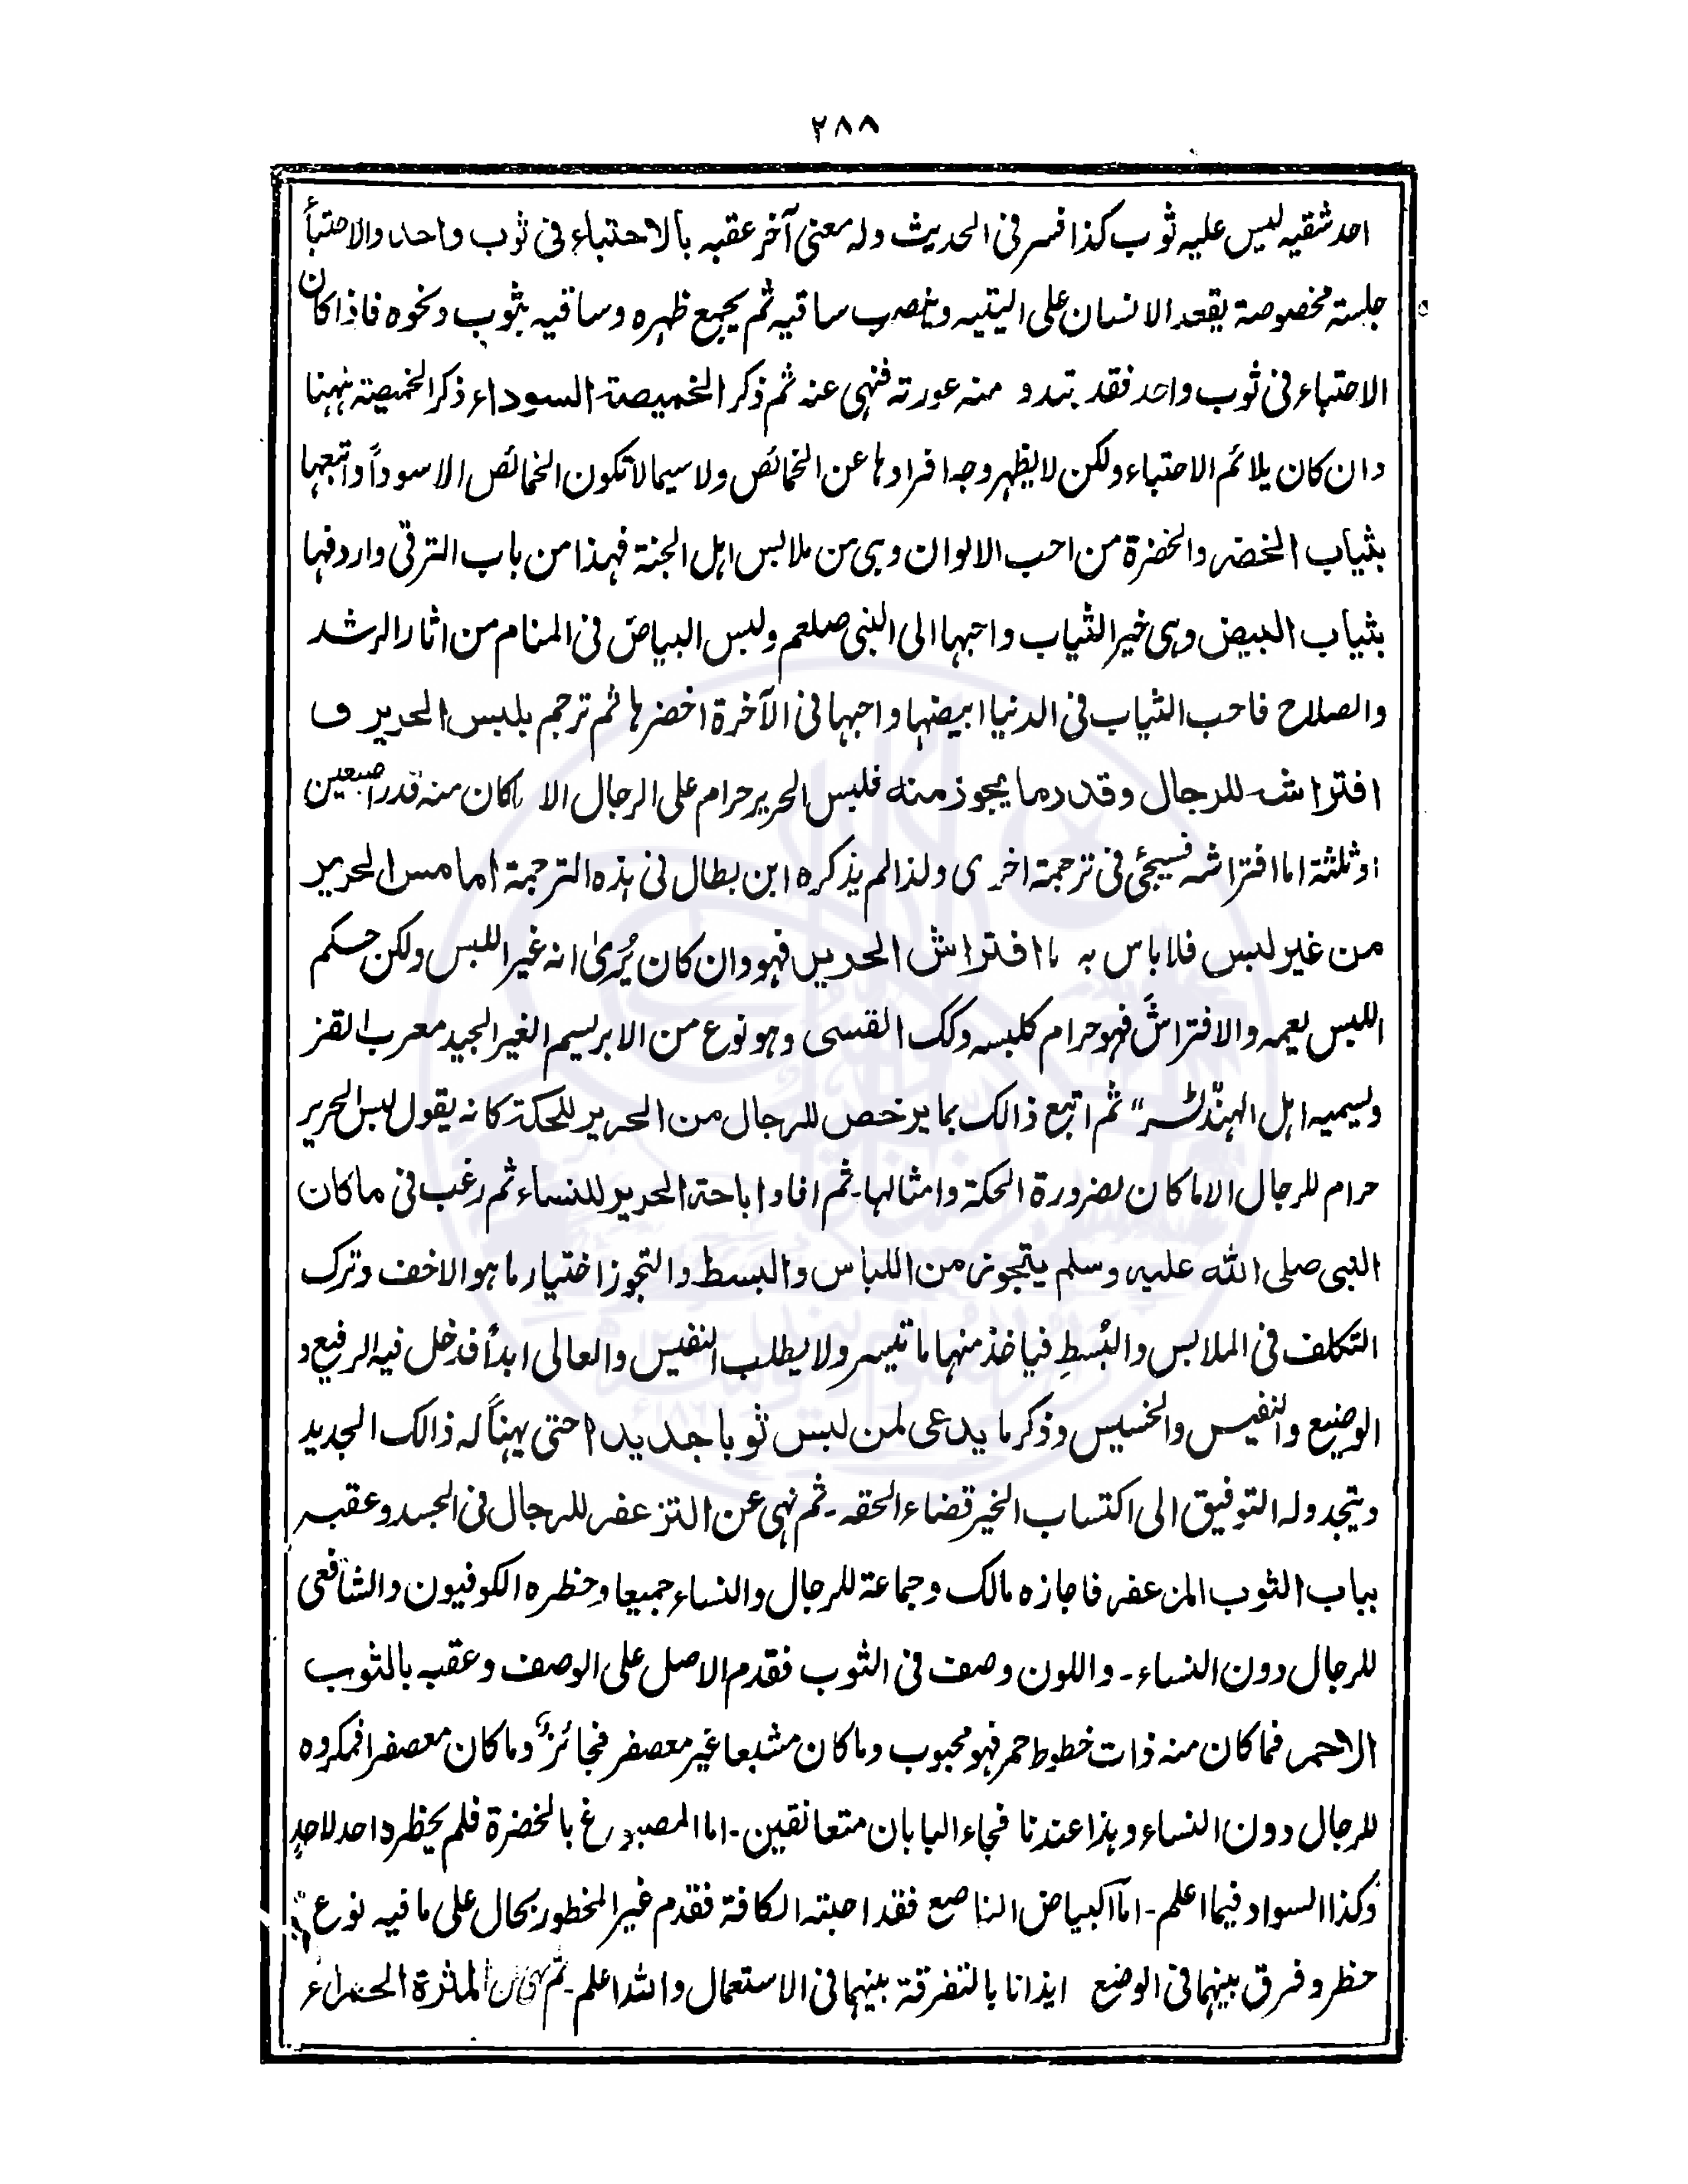 ٢٨٨
احد شقيه ليس عليه ثوب كذا فسر فى الحديث وله معنى آخر عقبه بالاحتباء فى ثوب واحد والاحتبأ
جلسته مخصوصة يقعد الانسان على اليتيه وينصب ساقيه ثم يجمع ظهره وساقيه بثوب ونحوه فاذا كان
الاحتباء فى ثوب واحد فقد تبدو منه عورته فنهى عنه ثم ذكر الخميصة السوداء ذكر الخميصة ههنا
وان كان يلائم الاحتباء ولكن لا يظهر وجه افرادها عن الخمائص ولا سيما لا تكون الخمائص الا سوداً واتبعها
بثياب الخضر والخضرة من احب الالوان وهى من ملابس اهل الجنة فهذا من باب الترقى واردفها
بثياب البيض وهى خير الثياب واحبها الى النبى صلعم ولبس البياض فى المنام من اثار الرشد
والصلاح فاحب الثياب فى الدنيا ابيضها واحبها فى الآخرة اخضرها ثم ترجم بلبس الحرير و
افتراشه للرجال وقدر ما يجوز منه فلبس الحرير حرام على الرجال الا ما كان منه قدر اصبعين
او ثلثة اما افتراشه فسيجئ فى ترجمة اخرى ولذا لم يذكره ابن بطال فى هذه الترجمة اما مس الحرير
من غير لبس فلا باس به ما افتراش الحرير فهو وان كان يُرىٰ انه غير اللبس ولكن حكم
اللبس يعمه والافتراش فهو حرام كلبسه وكك القسى وهو نوع من الابريسم الغير الجيد معرب القز
ويسميه اهل الهند ٹسر" ثم اتبع ذالك بما يرخص للرجال من الحرير للحكة كانه يقول لبس الحرير
حرام للرجال الا ما كان لضرورة الحكة وامثالها۔ ثم افاد اباحة الحرير للنساء ثم رغب فى ما كان
النبى صلى الله عليه وسلم يتجوز من اللباس والبسط والتجوز اختيار ما هو الاخف وترك
التكلف فى الملابس والبُسطِ فياخذ منها ما تيسر ولا يطلب النفيس والعالى ابداً فدخل فيه الرفيع و
الوضيع والنفيس والخسيس وذكر ما يدعى لمن لبس ثوبا جديدا حتى يهنأ له ذالك الجديد
ويتجدد له التوفيق الى اكتساب الخير قضاء الحقه۔ ثم نهى عن التزعفر للرجال فى الجسد وعقبه
بباب الثوب المزعفر فاجازه مالك وجماعة للرجال والنساء جميعا وحظره الكوفيون والشافعى
للرجال دون النساء۔ واللون وصف فى الثوب فقدم الاصل على الوصف وعقبه بالثوب
الاحمر فما كان منه ذات خطوط حمر فهو محبوب وما كان مشبعا غير معصفر فجائز وما كان معصفرا فمكروه
للرجال دون النساء وهذا عندنا فجاء البابان متعانقين۔ اما المصبوغ بالخضرة فلم يحظره احد لاحدٍ
وكذا السواد فيما اعلم۔ اما البياض الناصع فقد احبته الكافة فقدم غير المحظور بحال على ما فيه نوع
حظر وفرق بينهما فى الوضع ايذانا بالتفرقة بينهما فى الاستعمال والله اعلم۔ ثم نهى عن المئثرة الحمراء